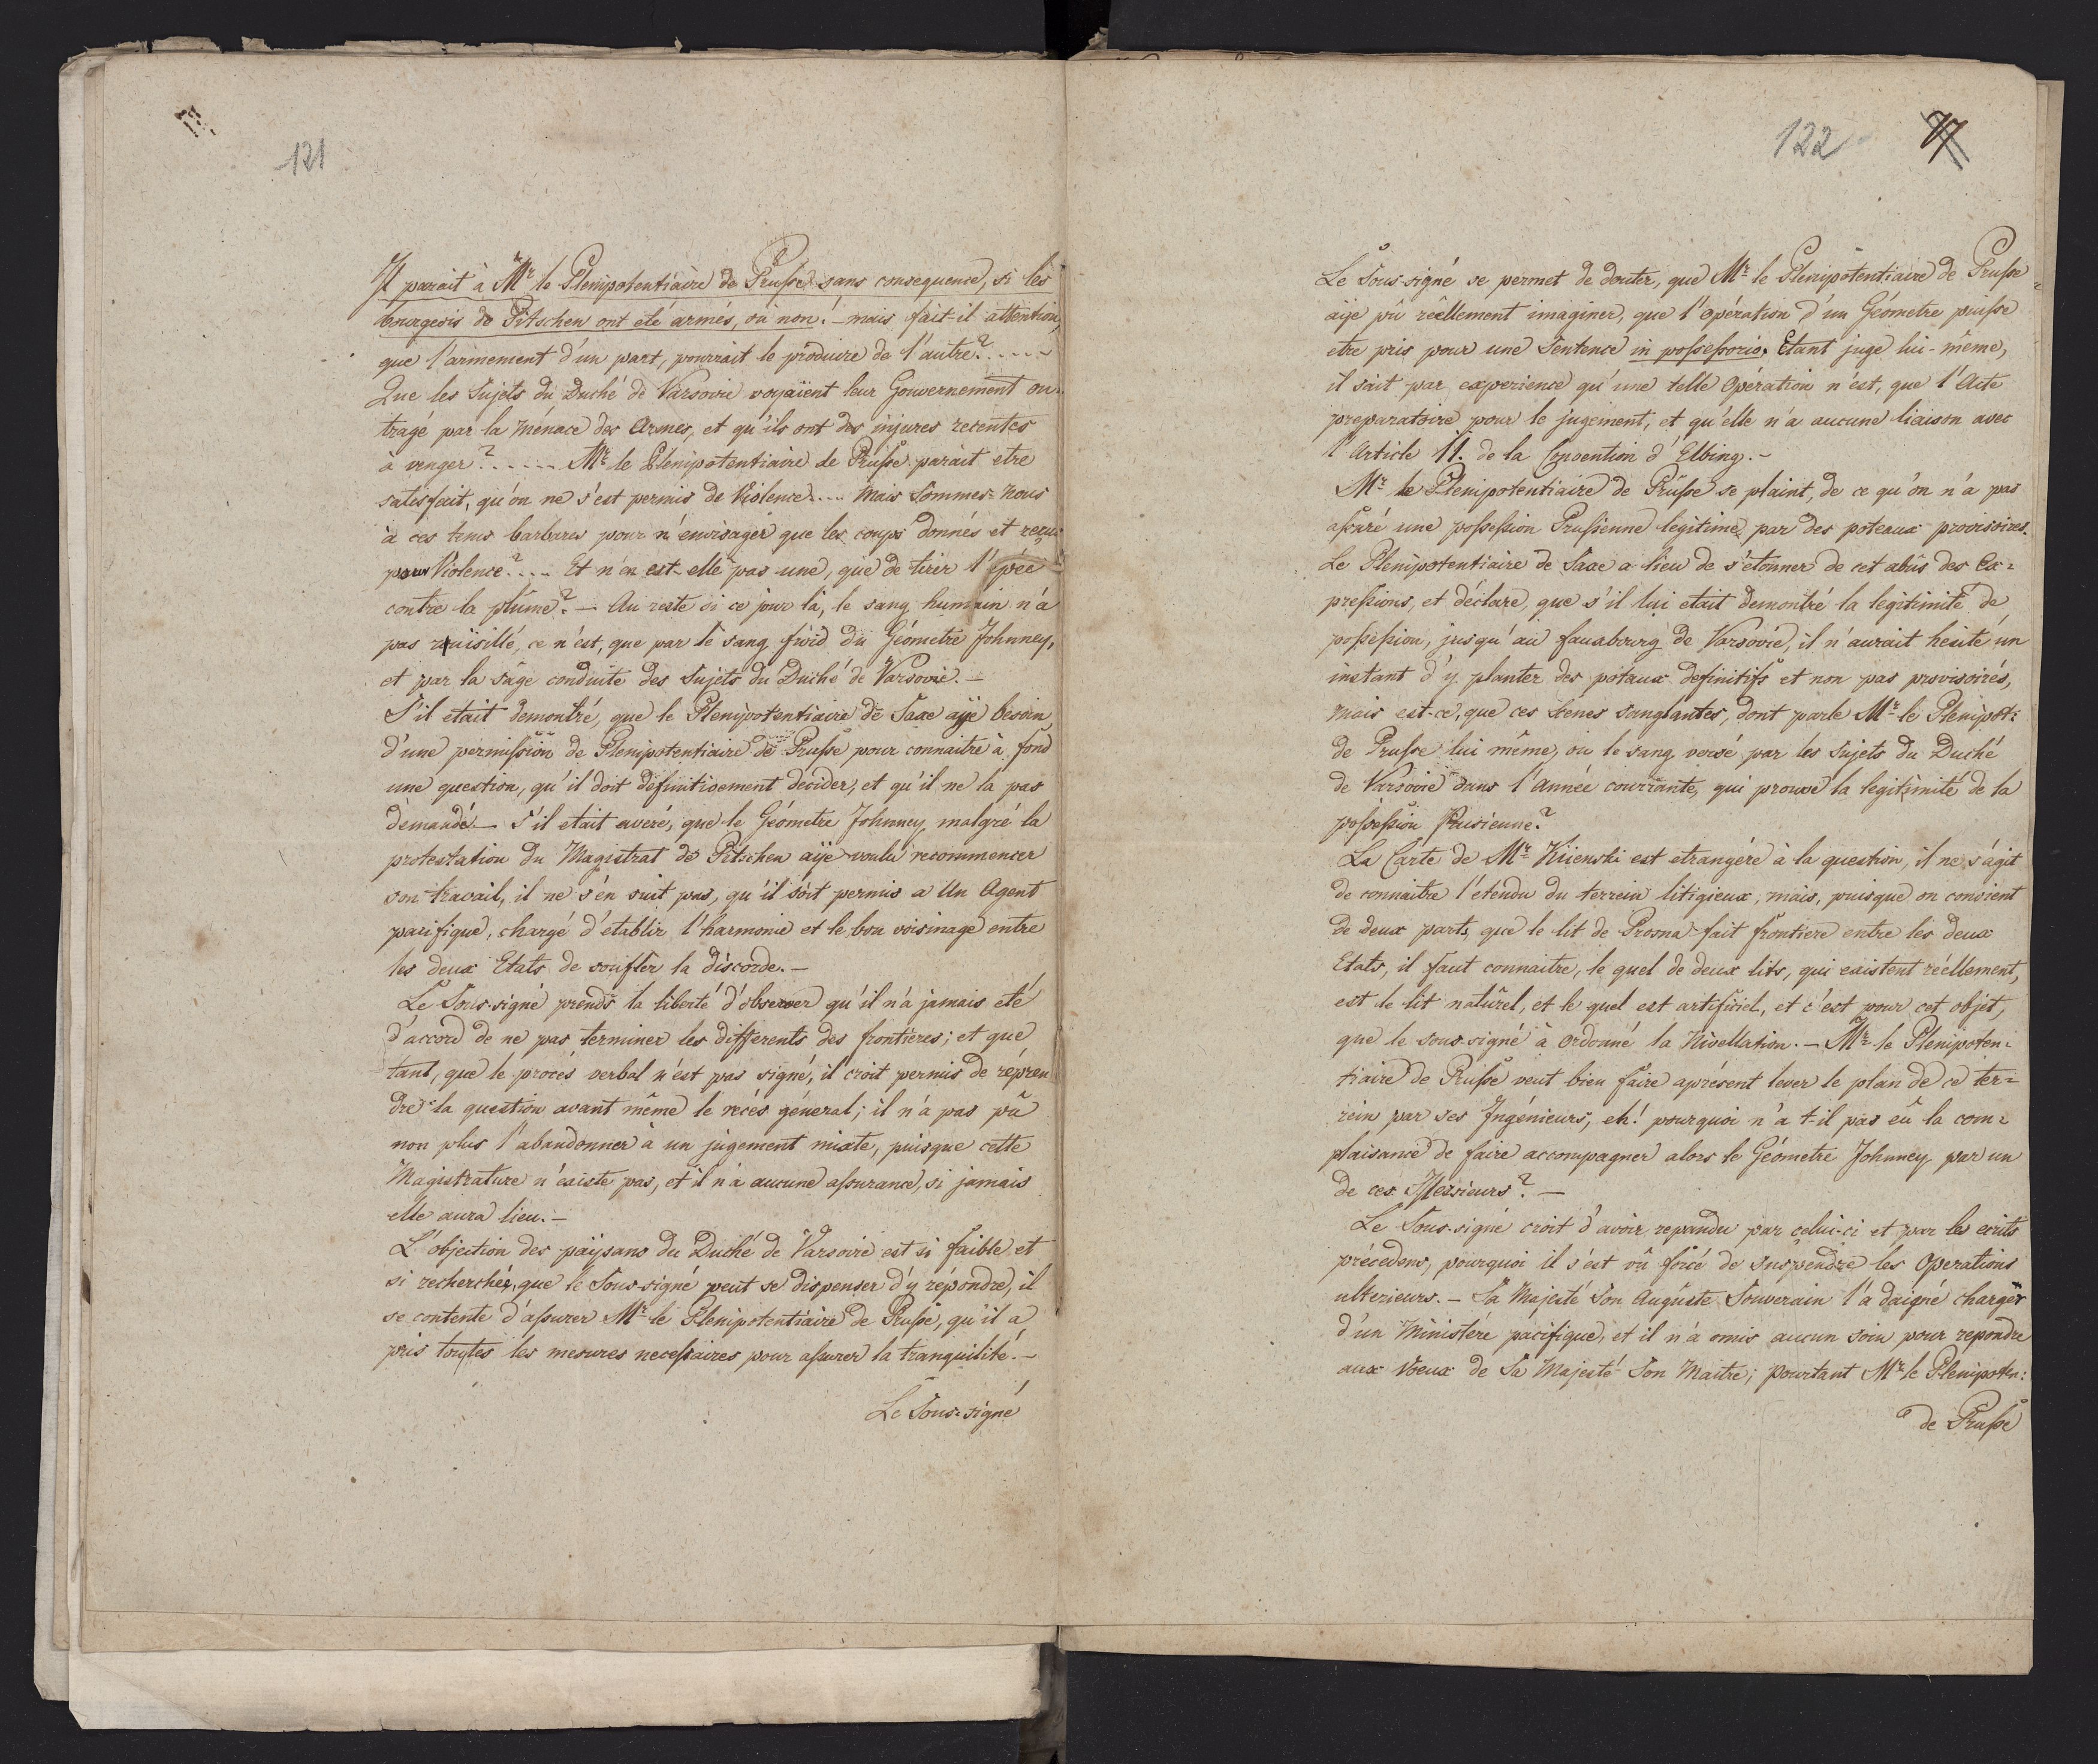 121
Il parait à Mr le Plenipotentiaire de Prusse sans consequence, si les
bourgeois de Pitschen ont eté armés, ou non! – mais fait-il attention,
que l'armement d'un part, pourrait le produire de l'autre? .....
Que les Sujets du Duché de Varsovie voyaient leur Gouvernement ou-
tragé par la Ménace des Armes, et qu'ils ont des injures recentes
à venger? ...... Mr le Plenipotentiaire de Prusse parait etre
satisfait, qu'on ne s'est permis de Violence .... Mais Sommes-Nous
à ces tems barbares pour n'envisager que les coups donnés et reçus
pour Violence? .... Et n'en est-elle pas une, que de tirer l'épée
contre la plume? – Au reste si ce jour là, le sang humain n'a
pas ruissillé, ce n'est, que par le sang froid du Géometre Johnney,
et par la sage conduite des Sujets du Duché de Varsovie. –
S'il etait demontré, que le Plenipotentiaire de Saxe aÿe besoin
d'une permission de Plenipotentiaire de Prusse pour connaitre à fond
une question, qu'il doit definitivement decider, et qu'il ne la pas
demandé – S'il etait averé, que le Géometre Johnney, malgré la
protestation du Magistrat de Pitschen aÿe voulu recommencer
son travail, il ne s'en suit pas, qu'il soit permis a Un Agent
pacifique, chargé d'etablir l'harmonie et le bon voisinage entre
les deux Etats de soufler la discorde. –
Le Sous-signé prends la liberté d'observer qu'il n'a jamais eté
d'accord de ne pas terminer les differents des frontieres; et que
tant, que le procés verbal n'est pas signé, il croit permis de répren
dre la question avant même le recés géneral; il n'a pas pû
non plus l'abandonner à un jugement mixte, puisque cette
Magistrature n'existe pas, et il n'a aucune assurance, si jamais
elle aura lieu. –
L'objection des paÿsans du Duché de Varsovie est si faible et
si recherchée, que le Sous-signé peut se dispenser d'y répondre, il
se contente d'assurer Mr le Plenipotentiaire de Prusse, qu'il a
pris toutes les mesures necessaires pour assurer la tranquilité. –
Le Sous-signé
122 77
Le Sous-signé se permet de douter, que Mr le Plenipotentiaire de Prusse
aÿe pû réellement imaginer, que l'opération d'un Géometre puisse
etre pris pour une Sentence in possessorio, Etant juge lui-même,
il sait par experience qu'une telle Opération n'est, que l'Acte
preparatoire pour le jugement, et qu'elle n'a aucune liaison avec
l'Article 11. de la Convention d'Elbing. –
Mr le Plenipotentiaire de Prusse se plaint, de ce qu'on n'a pas
assuré une possession Prussienne legitime par des poteaux provisoires.
Le Plenipotentiaire de Saxe a lieu de s'étonner de cet abus des Ex-
pressions, et déclare, que s'il lui etait demontré la legitimité de
possession, jusqu'au fauxbourg de Varsovie, il n'aurait hesité un
instant d'y planter des potaux definitifs et non pas provisoirés,
Mais est-ce, que ces Scenes sanglantes, dont parle Mr le Plenipot:
de Prusse lui même, ou le sang versé par les Sujets du Duché
de Varsovie dans l'Année courrante, qui prouve la legitimité de la
possession Prusienne?
La Carte de Mr Kiienski est etrangére à la question, il ne s'agit
de connaitre l'etendu du terrein litigieux; mais, puisque on convient
de deux parts, que le lit de Prosna fait frontiere entre les deux
Etats, il faut connaitre, le quel de deux lits, qui existent réellement,
est le lit naturel, et le quel est artificiel, et c'est pour cet objet,
que le sous-signé à ordonné la Nivellation. – Mr le Plenipoten-
tiaire de Prusse veut bien faire aprésent lever le plan de ce ter-
rein par ses Ingénieurs, eh! pourquoi n'a t-il pas eû la com-
plaisance de faire accompagner alors le Géometre Johnney par un
de ces Messieurs? –
Le Sous-signé croit d'avoir repandu par celui-ci et par les ecrits
précedens, pourquoi il s'est vû forcé de suspendre les Operations
ulterieurs. – Sa Majesté Son Auguste Souverain l'a daigné charger
d'un Ministére pacifique, et il n'a omis aucun soin pour repondre
aux Voeux de Sa Majesté Son Maitre; pourtant Mr le Plenipoten:
de Prusse